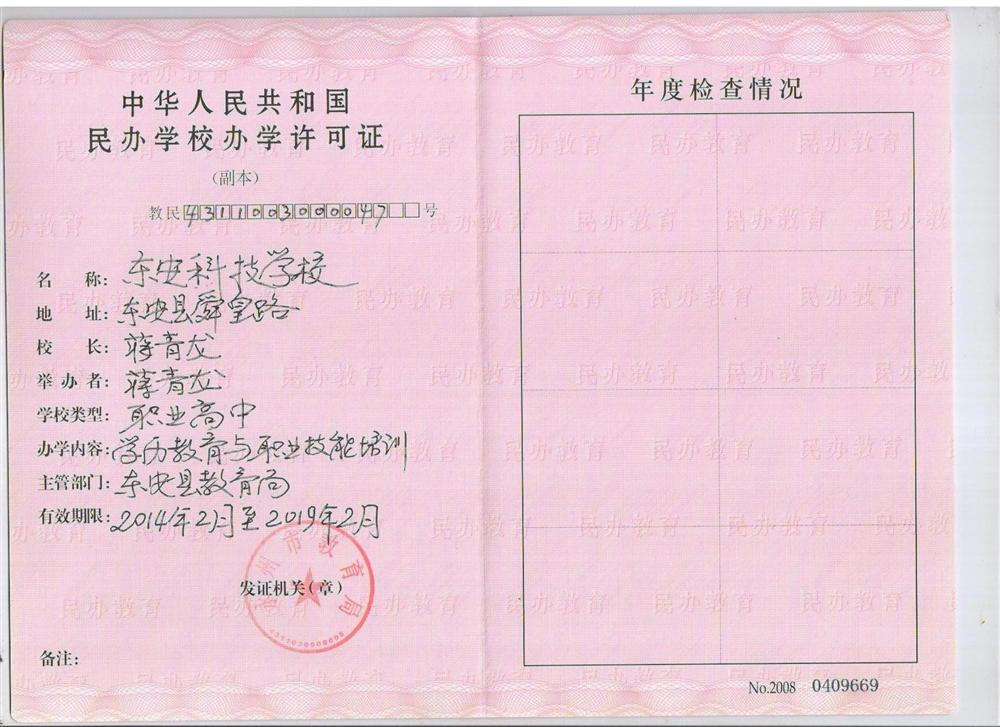 中华人民共和国
民办学校办学许可证
(副本)
教民431100300004 7号
名称:东安科技学校
地址:东安县舜皇路
校长:蒋青龙
举办者:蒋青龙
学校类型:职业高中
办学内容:学历教育与职业技能培训
主管部门:东安县教育局
有效期限:2014年2月至2019年2月
州市教育局
发证机关(章)
备注:
年度检查情况
No.2008 0409669